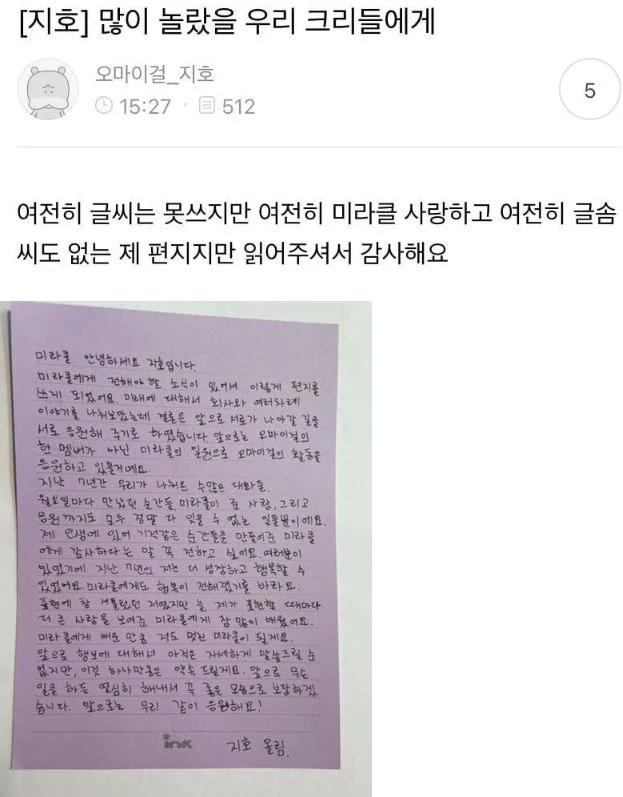 [지호] 많이 놀랐을 우리 크리들에게
오마이걸_지호
15:27 · 512
5
여전히 글씨는 못쓰지만 여전히 미라클 사랑하고 여전히 글솜
씨도 없는 제 편지지만 읽어주셔서 감사해요
미라클 안녕하세요 지호입니다.
미라클에게 전해야할 소식이 있어서 이렇게 편지를
쓰게 되었어요. 미래에 대해서 회사와 여러차례
이야기를 나눠보았는데 결론은 앞으로 서로가 나아갈 길을
서로 응원해 주기로 하였습니다. 앞으로는 오마이걸의
한 멤버가 아닌 미라클의 일원으로 오마이걸의 활동을
응원하고 있을거예요.
지난 7년간 우리가 나눠온 수많은 대화들.
월요일마다 만났던 순간들, 미라클이 준 사랑, 그리고
응원까지도 모두 정말 다 잊을 수 없는 일들뿐이예요.
제 인생에 있어 기적같은 순간들을 만들어준 미라클
에게 감사하다는 말 꼭 전하고 싶어요. 여러분이
있었기에 지난 7년의 저는 더 성장하고 행복할 수
있었어요. 미라클에게도 행복이 전해졌기를 바라요.
표현에 참 서툴렀던 저였지만 늘 제가 표현할 때마다
더 큰 사랑을 보여준 미라클에게 참 많이 배웠어요.
미라클에게 배운 만큼 저도 멋진 미라클이 될게요.
앞으로 행보에 대해서 아직은 자세하게 말씀드릴 순
없지만, 이것 하나만큼은 약속 드릴게요. 앞으로 무슨
일을 하든 열심히 해내서 꼭 좋은 모습으로 보답하겠
습니다. 앞으로는 우리 같이 응원해요!
ink
지호 올림.